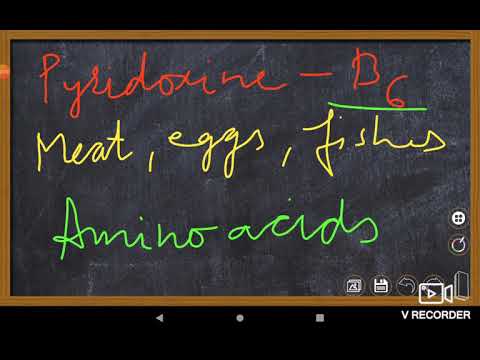 Pyridoxine - B6
Meat, eggs, fishes
Amino acids
V RECORDER